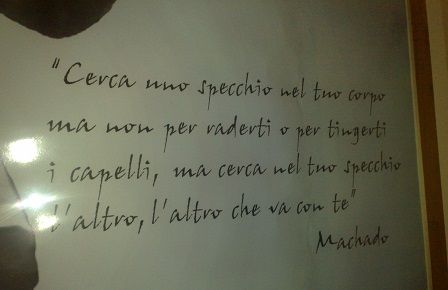 "Cerca uno specchio nel tuo corpo
ma non per raderti o per tingerti
i capelli, ma cerca nel tuo specchio
l'altro, l'altro che va con te"
Machado